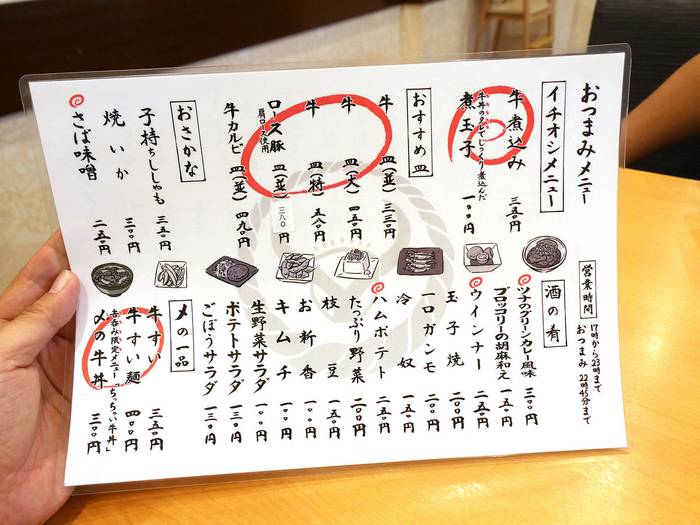 おつまみメニュー
イチオシメニュー
牛煮込み 三五〇円
牛丼のタレでじっくり煮込んだ
煮玉子 一〇〇円
おすすめ皿
牛皿(並) 三三〇円
牛皿(大) 四五〇円
牛皿(特) 五八〇円
ロース豚皿(並) 三八〇円
肩ロース使用
牛カルビ皿(並) 四九〇円
おさかな
子持ちししゃも 三五〇円
焼いか 三〇〇円
さば味噌 二五〇円
営業時間
17時から23時まで
おつまみ 22時45分まで
酒の肴
ツナのグリーンカレー風味 三〇〇円
ブロッコリーの胡麻和え 一五〇円
ウインナー 二五〇円
玉子焼 二〇〇円
一口ガンモ 二〇〇円
冷奴 一五〇円
ハムポテト 二五〇円
たっぷり野菜 二〇〇円
枝豆 一五〇円
お新香 一〇〇円
キムチ 一〇〇円
生野菜サラダ 一〇〇円
ポテトサラダ 一三〇円
ごぼうサラダ 一三〇円
〆の一品
牛すい 三五〇円
牛すい麺 四〇〇円
吉呑み限定メニュー「ちっちい牛丼」
〆の牛丼 三〇〇円